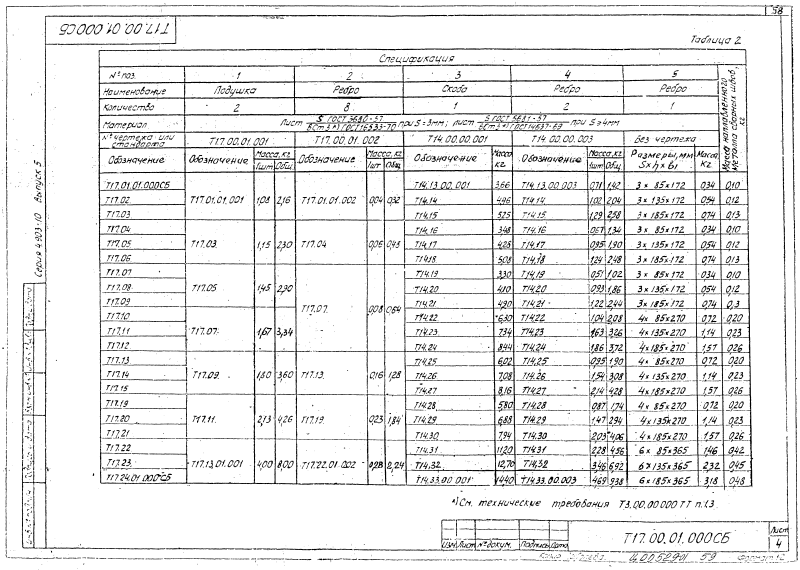 58
Т17.00.01.000СБ
Таблица 2
Серия 4.903-10 выпуск 5
Спецификация
№ поз. 1 2 3 4 5
Наименование Подушка Ребро Скоба Ребро Ребро
Количество 2 8 1 2 1
Материал Лист S ГОСТ 3680-57 / ВСт3*) ГОСТ 16523-70 при S=3мм; лист S ГОСТ 5681-57 / ВСт3*) ГОСТ 14637-69 при S≥4мм
Масса наплавленного металла сварных швов, кг
№ чертежа или стандарта Т17.00.01.001 Т17.00.01.002 Т14.00.00.001 Т14.00.00.003 Без чертежа
Обозначение Обозначение Масса, кг 1шт Общ Обозначение Масса, кг 1шт Общ Обозначение Масса кг Обозначение Масса, кг 1шт Общ Размеры, мм S×h×b1 Масса кг
Т17.01.01.000СБ Т14.13.00.001 3,66 Т14.13.00.003 0,71 1,42 3 × 85×172 0,34 0,10
Т17.02 Т17.01.01.001 1,08 2,16 Т17.01.01.002 0,04 0,32 Т14.14 4,46 Т14.14 1,02 2,04 3 × 135×172 0,54 0,12
Т17.03 Т14.15 5,25 Т14.15 1,29 2,58 3 × 185×172 0,74 0,13
Т17.04 Т14.16 3,48 Т14.16 0,67 1,34 3 × 85×172 0,34 0,10
Т17.05 Т17.03 1,15 2,30 Т17.04 0,06 0,45 Т14.17 4,28 Т14.17 0,95 1,90 3 × 135×172 0,54 0,12
Т17.06 Т14.18 5,08 Т14.18 1,24 2,48 3 × 185×172 0,74 0,13
Т17.07 Т14.19 3,30 Т14.19 0,51 1,02 3 × 85×172 0,34 0,10
Т17.08 Т17.05 1,45 2,90 Т14.20 4,10 Т14.20 0,93 1,86 3 × 135×172 0,54 0,12
Т17.09 Т17.07 0,08 0,64 Т14.21 4,90 Т14.21 1,22 2,44 3 × 185×172 0,74 0,13
Т17.10 Т14.22 6,30 Т14.22 1,04 2,08 4 × 85×270 0,72 0,20
Т17.11 Т17.07 1,67 3,34 Т14.23 7,34 Т14.23 1,63 3,26 4 × 135×270 1,14 0,23
Т17.12 Т14.24 8,44 Т14.24 1,86 3,72 4 × 185×270 1,57 0,26
Т17.13 Т14.25 6,02 Т14.25 0,95 1,90 4 × 85×270 0,72 0,20
Т17.14 Т17.09 1,80 3,60 Т17.13 0,16 1,28 Т14.26 7,08 Т14.26 1,54 3,08 4 × 135×270 1,14 0,23
Т17.15 Т14.27 8,16 Т14.27 2,14 4,28 4 × 185×270 1,57 0,26
Т17.19 Т14.28 5,80 Т14.28 0,87 1,74 4 × 85×270 0,72 0,20
Т17.20 Т17.11 2,13 4,26 Т17.19 0,23 1,84 Т14.29 6,88 Т14.29 1,47 2,94 4 × 135×270 1,14 0,23
Т17.21 Т14.30 7,94 Т14.30 2,03 4,06 4 × 185×270 1,57 0,26
Т17.22 Т14.31 11,20 Т14.31 2,28 4,56 6 × 85×365 1,46 0,42
Т17.23 Т17.13.01.001 4,00 8,00 Т17.22.01.002 0,28 2,24 Т14.32 12,70 Т14.32 3,46 6,92 6 × 135×365 2,32 0,45
Т17.24.01.000СБ Т14.33.00.001 14,40 Т14.33.00.003 4,69 9,38 6 × 185×365 3,18 0,48
*) См. технические требования Т3.00.00.000 ТТ п.1.3.
Т17.00.01.000СБ
Лист
4
Изм. Лист № докум. Подпись Дата
Формат 12